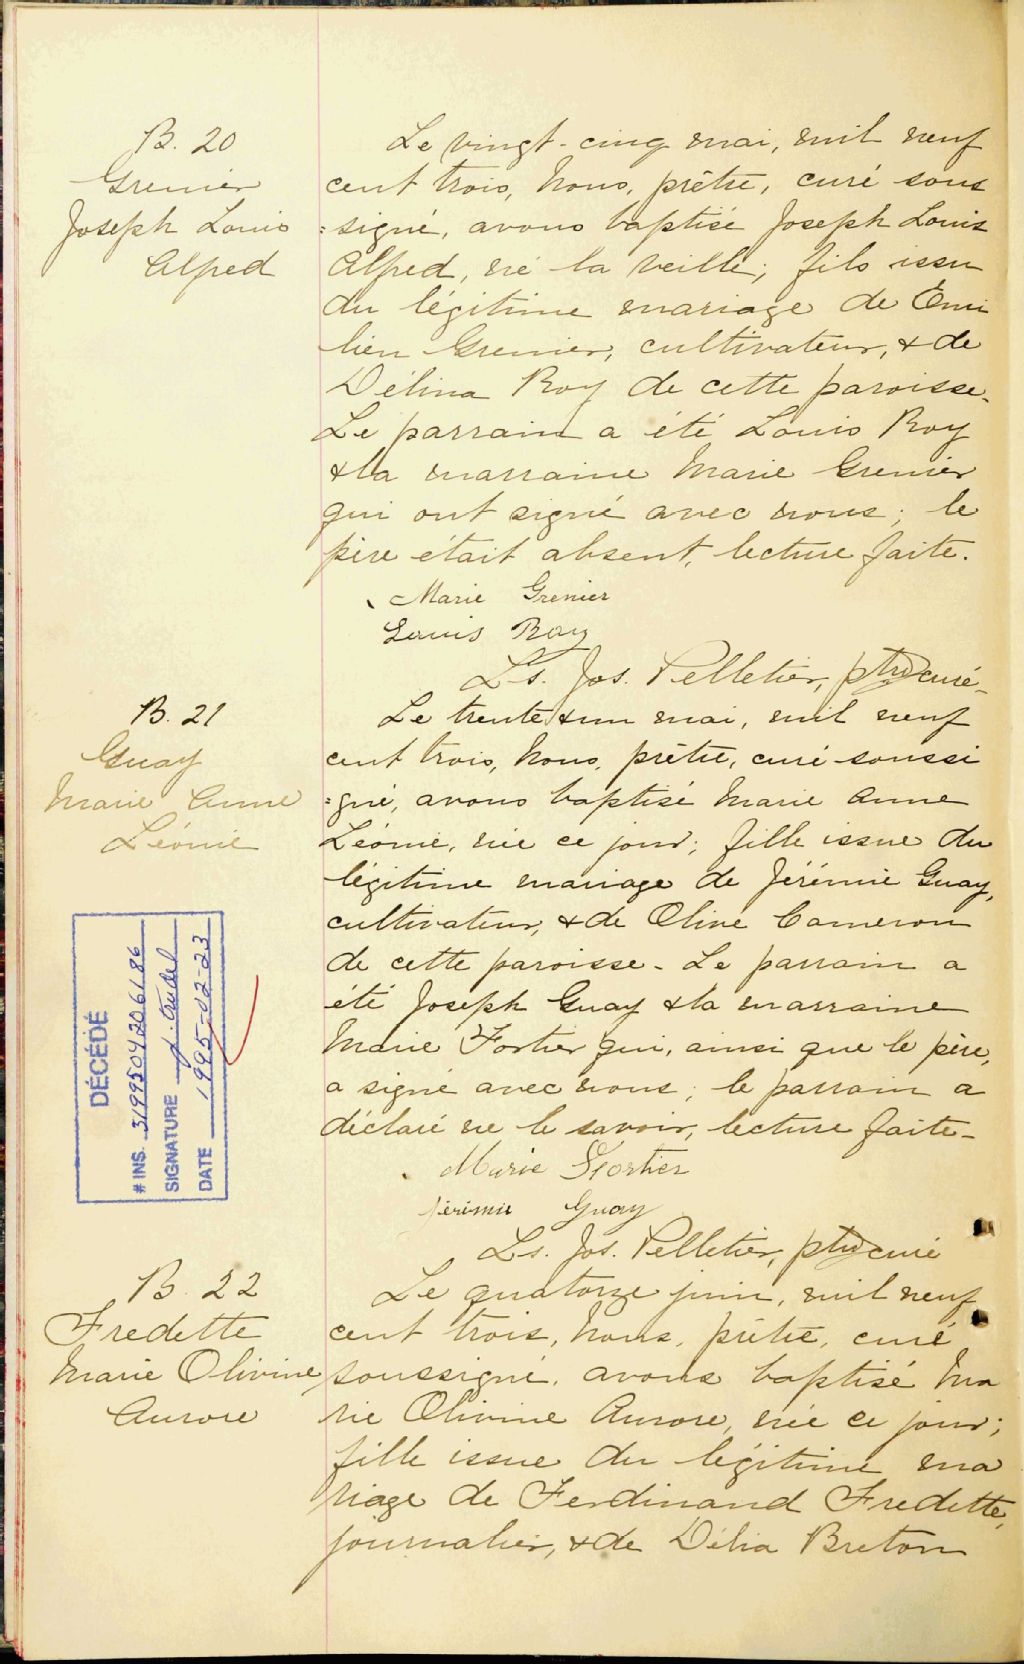 B. 20
Grenier
Joseph Louis
Alfred
Le vingt-cinq mai, mil neuf
cent trois, Nous, prêtre, curé sous
=signé, avons baptisé Joseph Louis
Alfred, né la veille; fils issu
du légitime mariage de Emi
lien Grenier, cultivateur, & de
Délina Roy de cette paroisse.
Le parrain a été Louis Roy
& la marraine Marie Grenier
qui ont signé avec nous; le
père était absent, lecture faite.
Marie Grenier
Louis Roy
Ls. Jos. Pelletier, ptre curé-
B. 21
Guay
Marie Anne
Léonie
Le trente & un mai, mil neuf
cent trois, Nous, prêtre, curé soussi
=gné, avons baptisé Marie Anne
Léonie, née ce jour; fille issue du
légitime mariage de Jérémie Guay,
cultivateur, & de Olive Cameron
de cette paroisse - Le parrain a
été Joseph Guay & la marraine
Marie Fortier qui, ainsi que le père,
a signé avec nous; le parrain a
déclaré ne le savoir, lecture faite-
Marie Fortier
Jérémie Guay
Ls. Jos. Pelletier, ptre curé
DÉCÉDÉ
# INS. 3199504206186
SIGNATURE J. Trudel
DATE 1995-02-23
B. 22
Fredette
Marie Olivine
Aurore
Le quatorze juin, mil neuf
cent trois, Nous, prêtre, curé
soussigné, avons baptisé Ma
rie Olivine Aurore, née ce jour;
fille issue du légitime ma
riage de Ferdinand Fredette,
journalier, & de Délia Breton